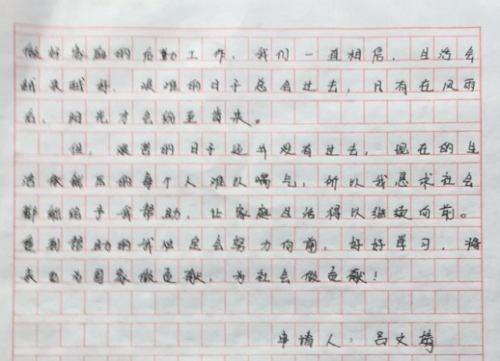 做好家庭的后勤工作，我们一直相信，生活会
越来越好，艰难的日子总会过去，只有在风雨
后，阳光才会纳至沓来。
但，艰苦的日子还并没有过去，现在的生
活依然压的每个人难以喘气，所以我恳求社会
都能给予我帮助，让家庭生活得以继续向前。
受到帮助的我但是会努力向前，好好学习，将
来也为国家做贡献，为社会做贡献！
申请人：吕文靖